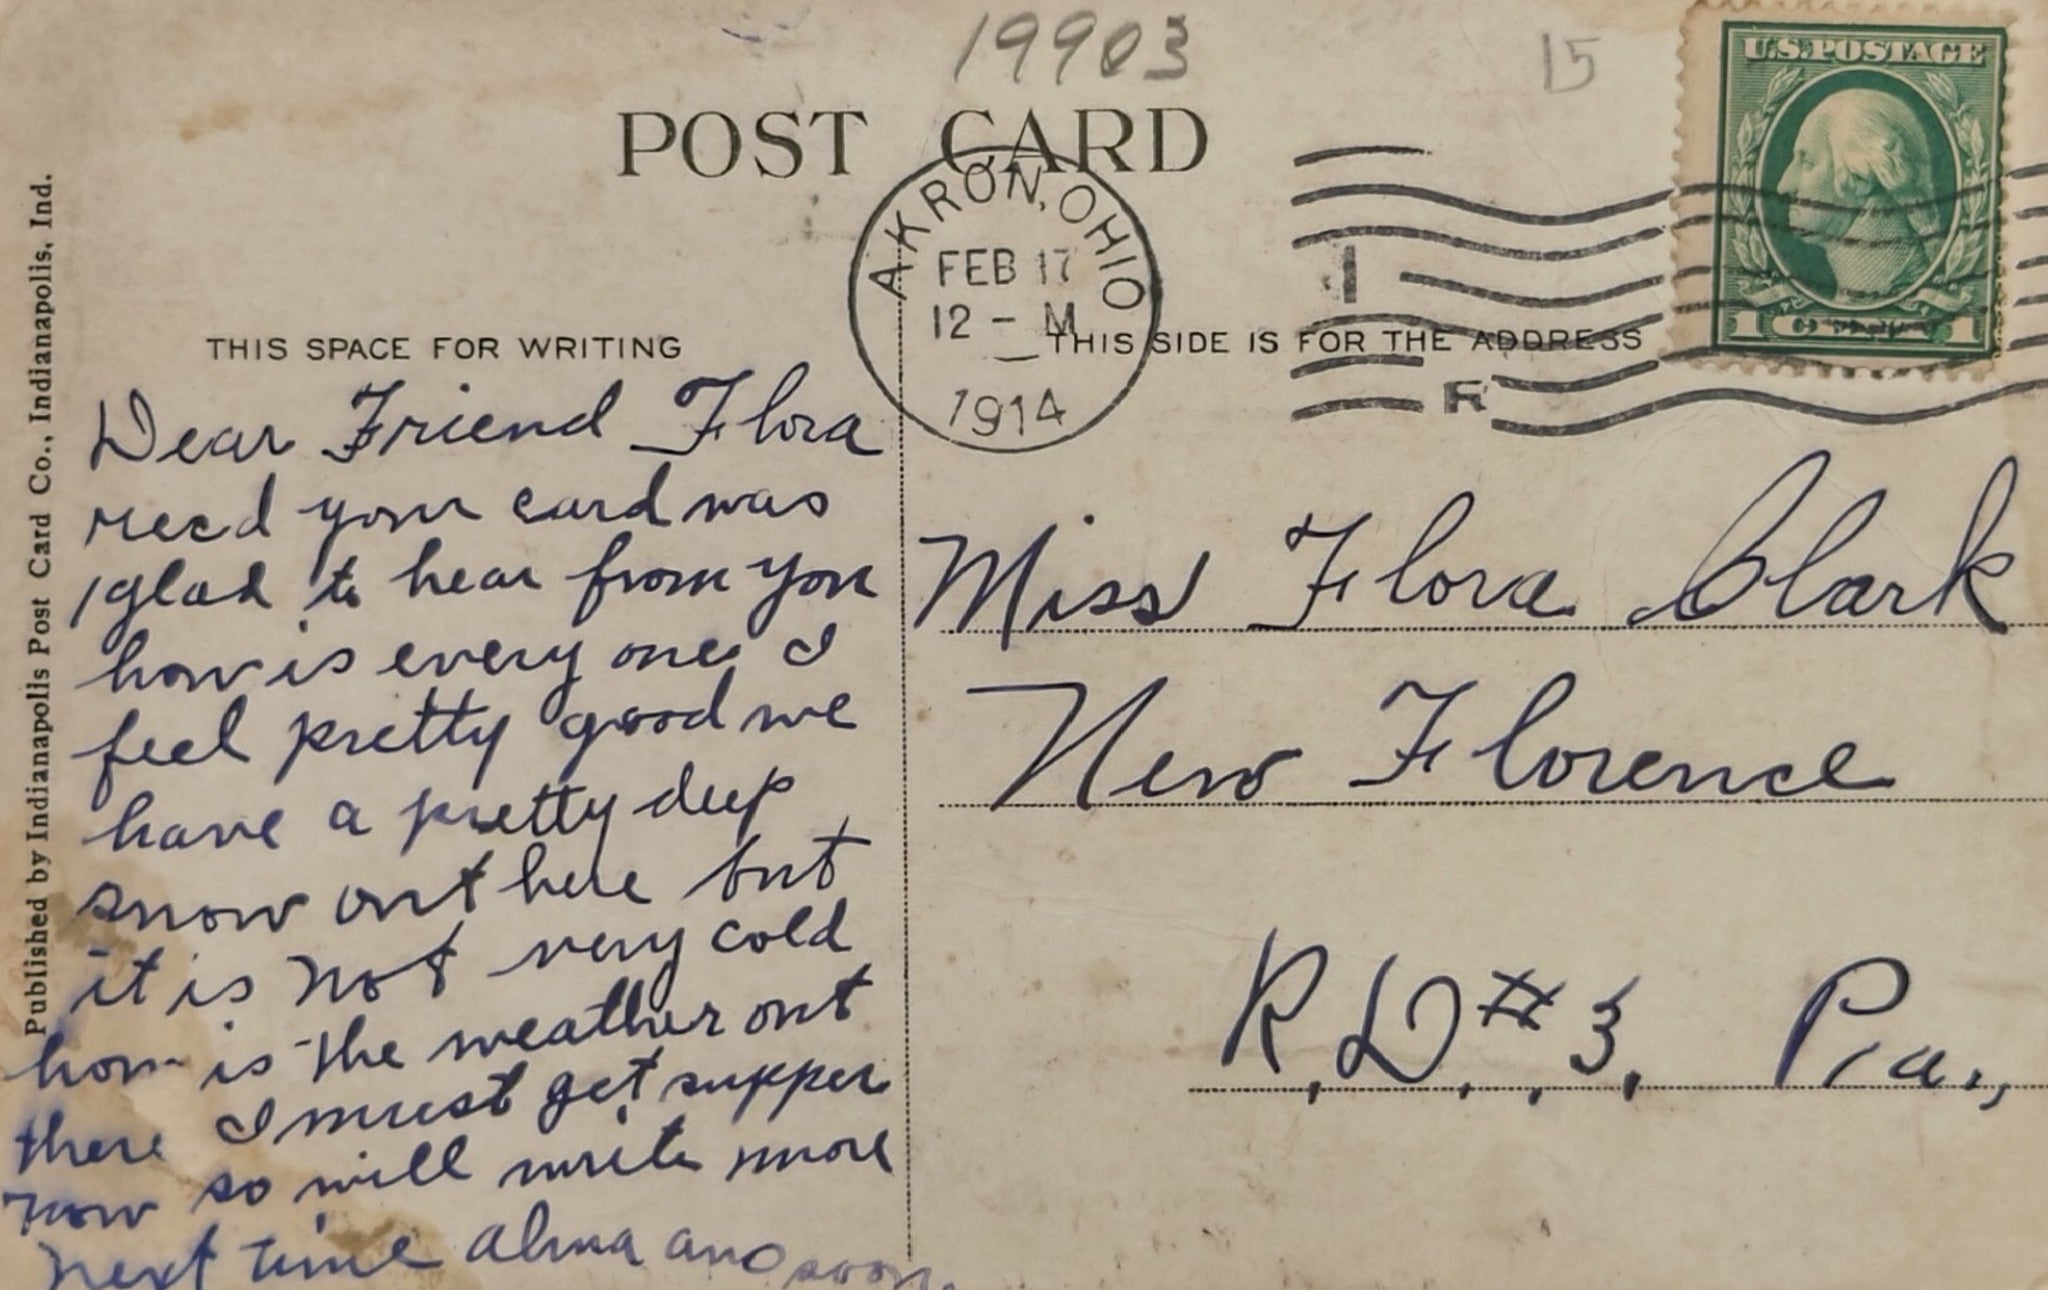 19903
15
U.S. POSTAGE
1 CENT 1
POST CARD
AKRON, OHIO
FEB 17
12 - M
1914
R
THIS SPACE FOR WRITING
THIS SIDE IS FOR THE ADDRESS
Published by Indianapolis Post Card Co., Indianapolis, Ind.
Dear Friend Flora
recd your card was
glad to hear from you
how is every one I
feel pretty good we
have a pretty deep
snow out here but
it is not very cold
how is the weather out
there I must get supper
now so will write more
next time Alma ans soon
Miss Flora Clark
New Florence
R.D. #3. Pa.,